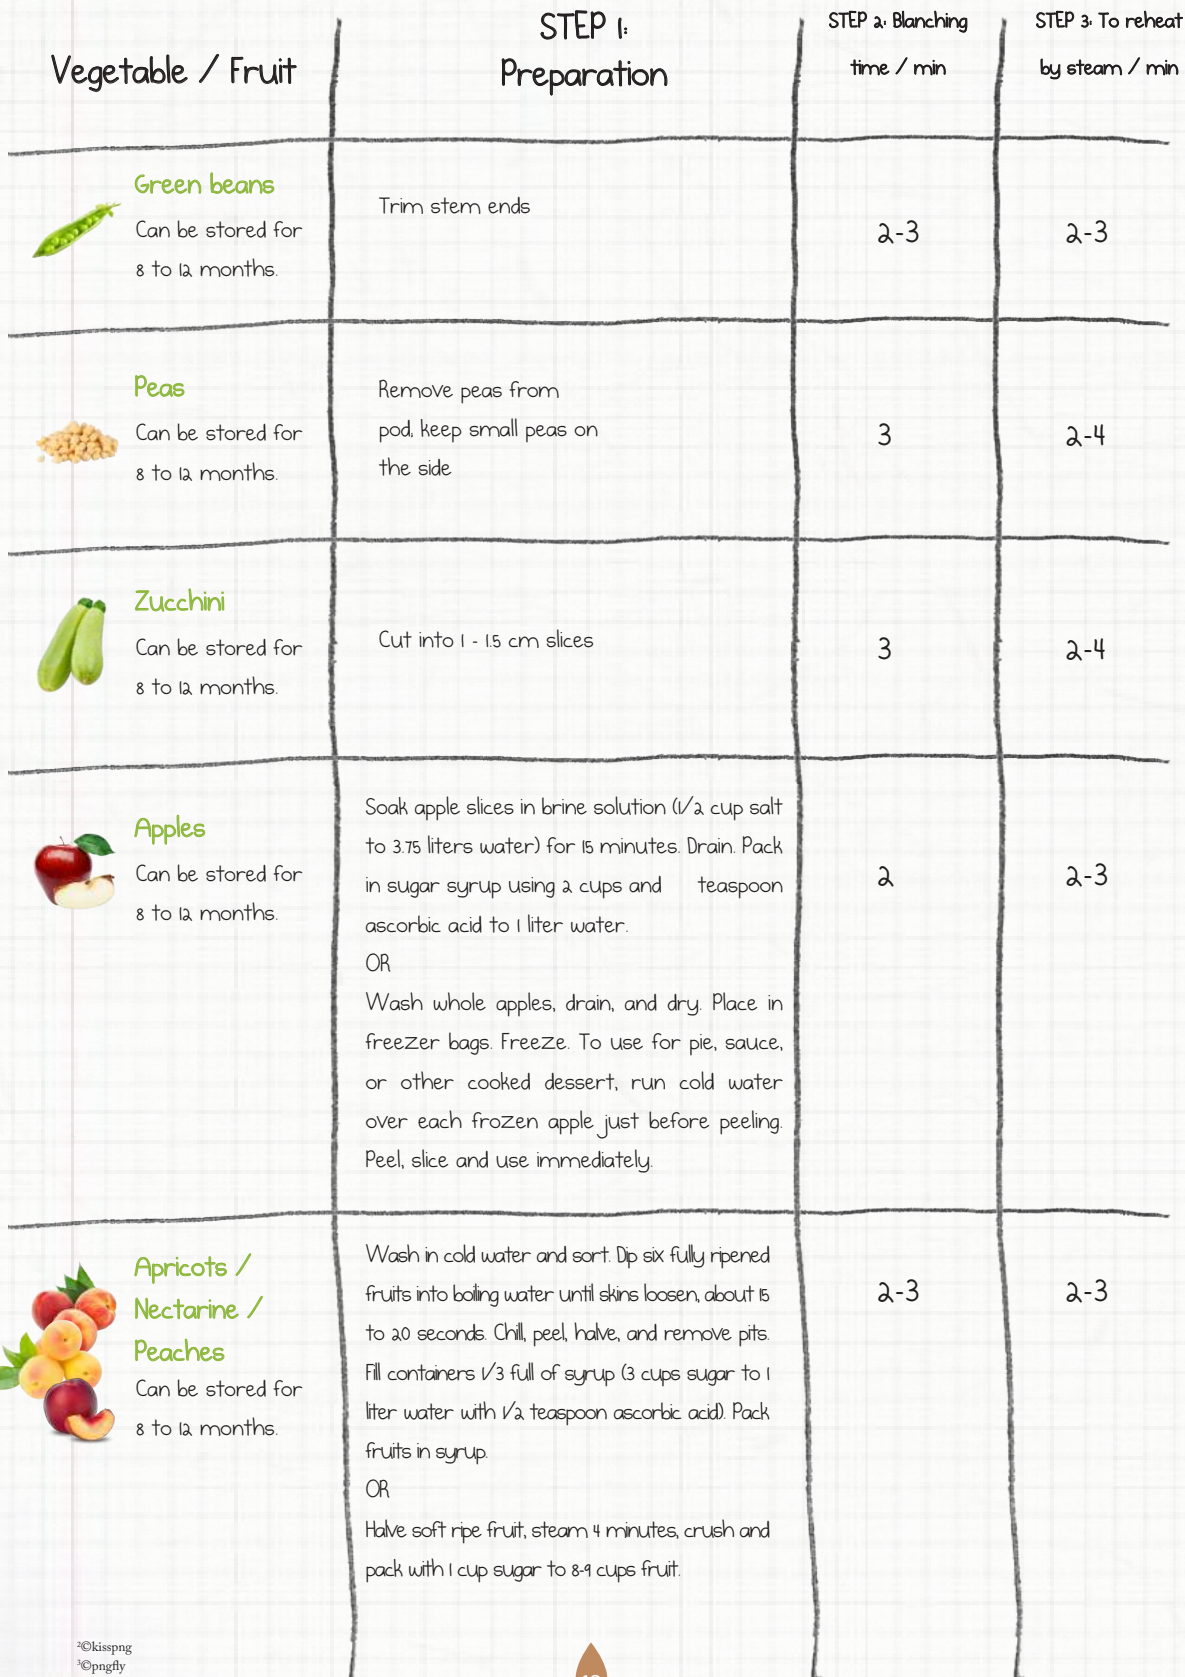 Vegetable / Fruit
STEP 1:
Preparation
STEP 2: Blanching
time / min
STEP 3: To reheat
by steam / min
Green beans
Can be stored for
8 to 12 months.
Trim stem ends
2-3
2-3
Peas
Can be stored for
8 to 12 months.
Remove peas from
pod, keep small peas on
the side
3
2-4
Zucchini
Can be stored for
8 to 12 months.
Cut into 1 - 1.5 cm slices
3
2-4
Apples
Can be stored for
8 to 12 months.
Soak apple slices in brine solution (1/2 cup salt
to 3.75 liters water) for 15 minutes. Drain. Pack
in sugar syrup using 2 cups and teaspoon
ascorbic acid to 1 liter water.
OR
Wash whole apples, drain, and dry. Place in
freezer bags. Freeze. To use for pie, sauce,
or other cooked dessert, run cold water
over each frozen apple just before peeling.
Peel, slice and use immediately.
2
2-3
Apricots /
Nectarine /
Peaches
Can be stored for
8 to 12 months.
Wash in cold water and sort. Dip six fully ripened
fruits into boiling water until skins loosen, about 15
to 20 seconds. Chill, peel, halve, and remove pits.
Fill containers 1/3 full of syrup (3 cups sugar to 1
liter water with 1/2 teaspoon ascorbic acid). Pack
fruits in syrup.
OR
Halve soft ripe fruit, steam 4 minutes, crush and
pack with 1 cup sugar to 8-9 cups fruit.
2-3
2-3
²©kisspng
³©pngfly